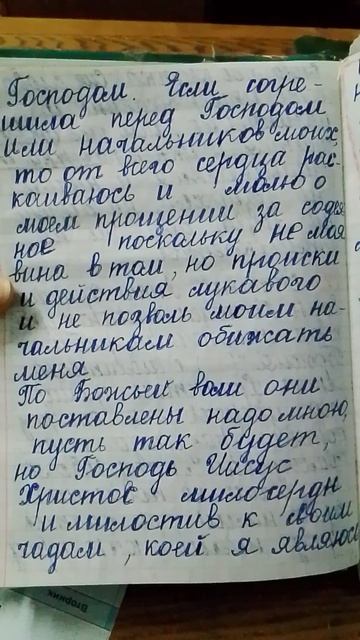 Господом. Если согре-
шила перед Господом
или начальников моих,
то от всего сердца рас-
каиваюсь и молю о
моем прощении за содея
ное поскольку не моя
вина в том, но происки
и действия лукавого
и не позволь моим на-
чальникам обижать
меня
По Божьей воли они
поставлены надо мною,
пусть так будет,
но Господь Иисус
Христос милосердн
и милостив к своим
чадам, коей я являюсь
Вторник